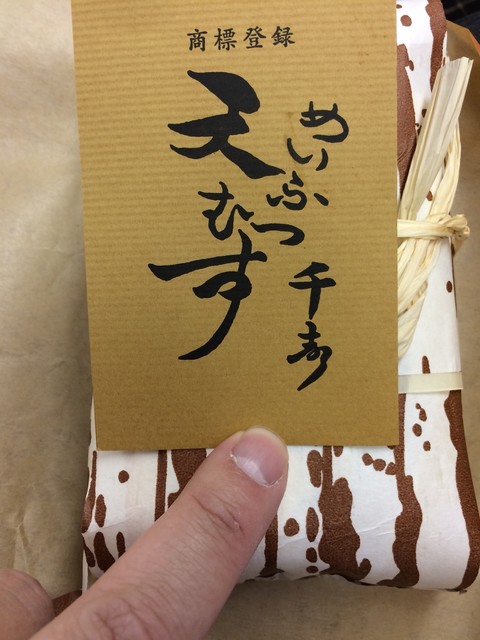 商標登録
めいふつ 千寿
天むす